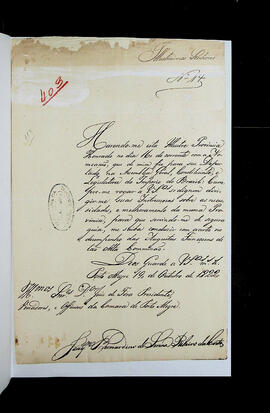 Illustrissimos Senhores
Nº 14
403
Havendo-me esta Illustre Provincia
Honrado no dia 16 do corrente com a No-
meação, que de mim fez para seu Depu-
tado na Assemblea Geral, Constituinte, e
Legislativa do Imperio do Brasil: Cum-
pre-me rogar a V.Sªs se dignem diri-
gir-me suas Instrucçoens sobre as neces-
sidades, e melhoramento da mesma Pro-
vincia, para que servindo me de
me saiba conduzir com acerto no
desempenho das Augustas Funcçoens de
tão Alta Commissão.
Deos Guarde a V.Sªs m. a.
Porto Alegre 19 de Outubro de 1822
Illmos Snrs Dor Juiz de Fora Presidente,
Vereadores, e Officiaes da Camara de Porto Alegre.
Bernardino de Senna Ribeiro da Costa